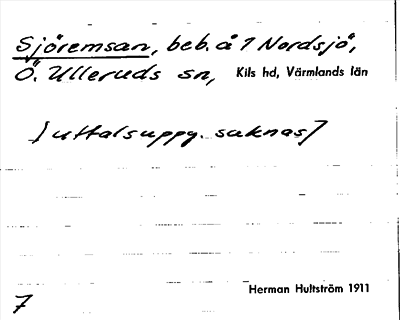 Sjöremsan, beb. å 1 Nordsjö,
Ö. Ulleruds sn, Kils hd, Värmlands län
[uttalsuppg. saknas]
Herman Hultström 1911
7